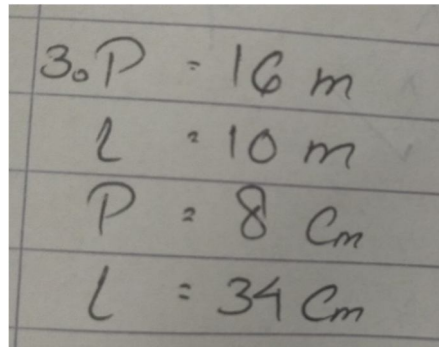 3. P = 16 m
l = 10 m
P = 8 Cm
L = 34 Cm